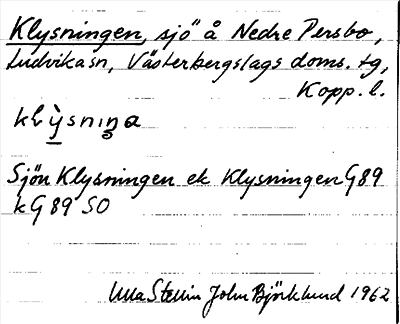 Klysningen, sjö å Nedre Persbo,
Ludvika sn, Västerbergslags doms. tg,
Kopp. l.
Sjön Klysningen ek Klysningen G 89
k G 89 SO
Ulla Stellin John Björklund 1962